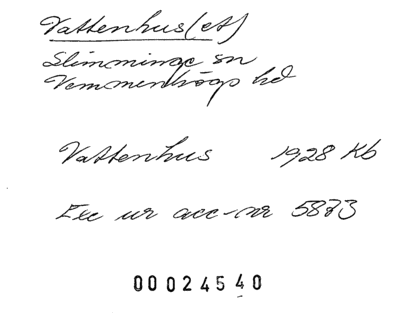 Vattenhus(et)
Slimminge sn
Vemmenhögs hd
Vattenhus 1928 Kb
Exc ur acc-nr 5873
00024540